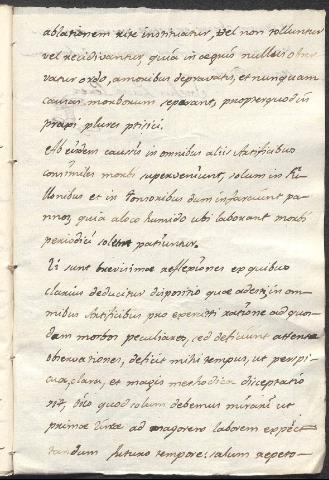 ablationem rite instituatur, vel non tolluntur
vel recidivantur quia in aegris nullus obser
vatur ordo, a moribus depravatis, et nunquam
causas morborum separant, propter quod in
plures ptisici.
Ab eisdem causis in omnibus aliis Artificibus
consimiles morbi superveniunt, solum in Ful
lonibus et in Tonsoribus dum infarciunt pa-
nnos, quia a loco humido ubi laborant morbos
periodicos solent patiuntur.
Ii sunt brevissimae reflexiones ex quibus
clarius deducitur dispositio quae adest in om-
nibus Artificibus pro exercitii ratione ad quos-
dam morbos peculiares, sed deficiunt attentae
observationes, deficit mihi tempus, ut perspi-
cua, clara, et magis methodica disceptatio
sit, dico quod solum debemus mirari ut
primae lineae ad majorem laborem expec-
tandum futuro tempore: salum